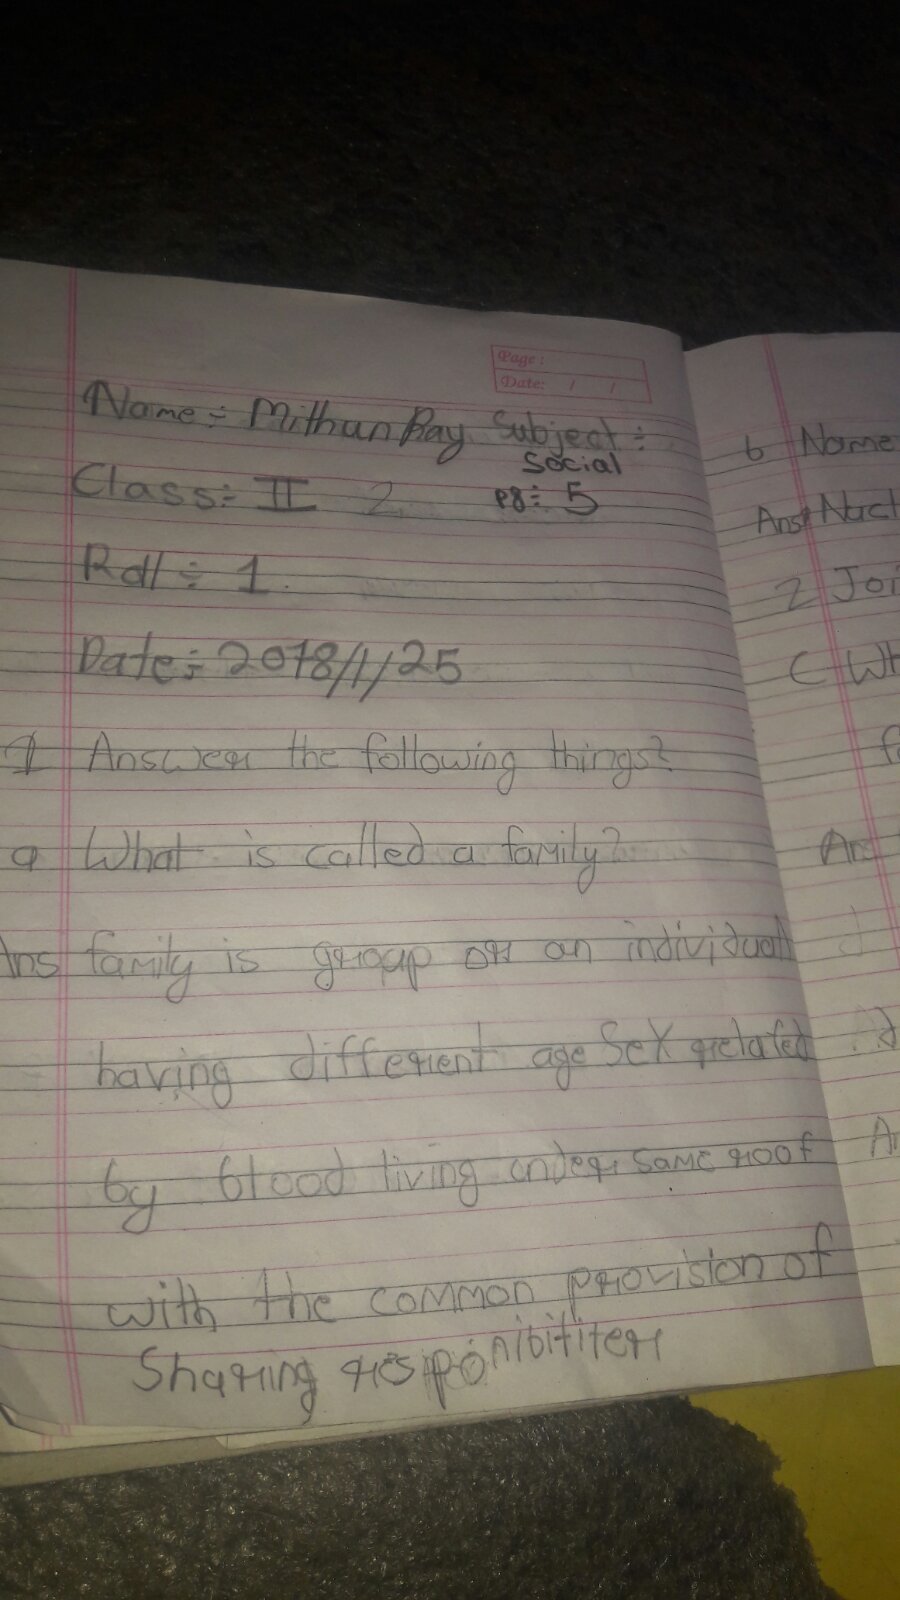 Page :
Date: / /
Name ÷ Mithun Ray Subject ÷
Social
Class ÷ II 2 pg ÷ 5
Roll ÷ 1
Date ÷ 2078/1/25
1 Answer the following things?
a What is called a family?
Ans family is group or an individual
having different age Sex related
by blood living under same roof
with the common provision of
Sharing
b Name
Ans
2 Joi
C Wh
f
Ans
d
An